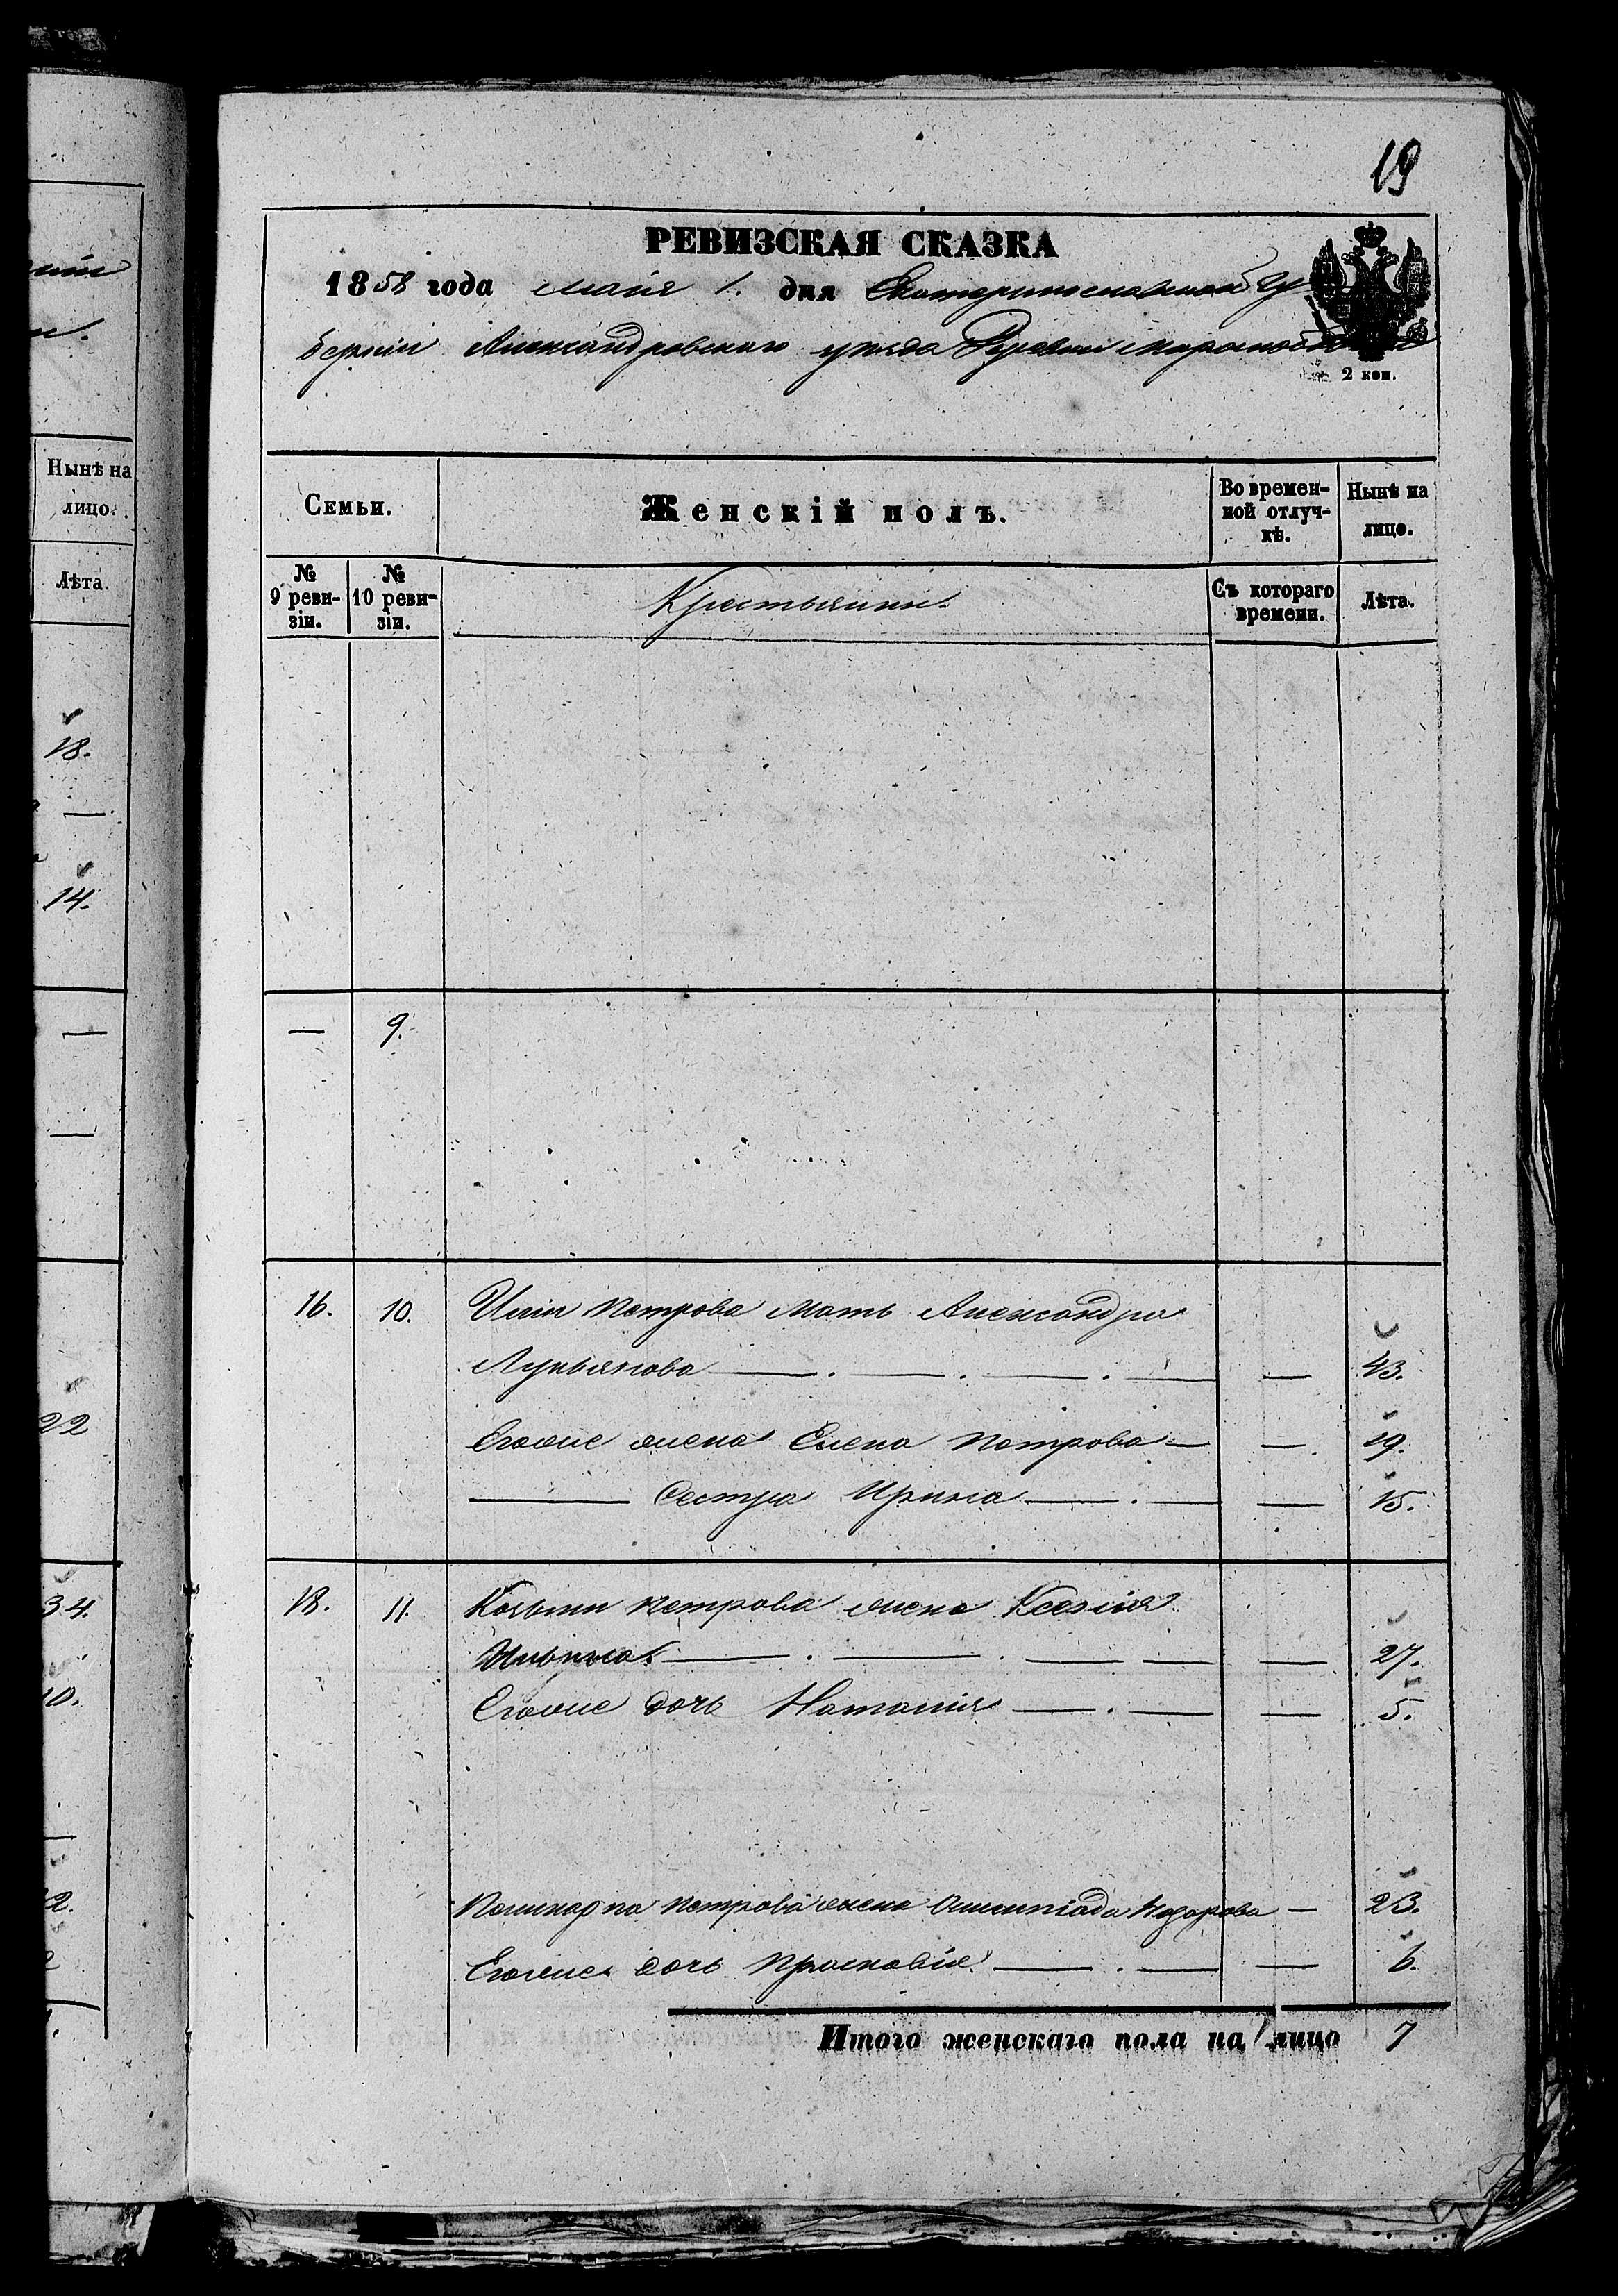 19
РЕВИЗСКАЯ СКАЗКА
1858 года мая 1. дня Екатеринославской Гу
берніи Александровскаго уѣзда
2 коп.
Нынѣ на лицо.
Лѣта.
18.
—
14.
—
—
22
34.
Семьи.
Женскій полъ.
Во времен-ной отлуч-кѣ.
Нынѣ на лицо.
№ 9 реви-зіи.
№ 10 реви-зіи.
Крестьянки.
Съ котораго времени.
Лѣта.
— 9.
16. 10. Иліи Петрова мать Александра
Лукьянова — . — . — . — — 43.
Егоже жена Елена Петрова — — . 19.
— Сестра Ирина — . — — 15.
18. 11. Козьмы Петрова жена Ксенія
Ильина — . — . — — — 27.
Егоже дочь Наталія — . — — 5.
Поликарпа Петрова жена Олимпіада Назарова — 23.
Егоже дочь Прасковія — . — — 6.
Итого женскаго пола на лицо 7